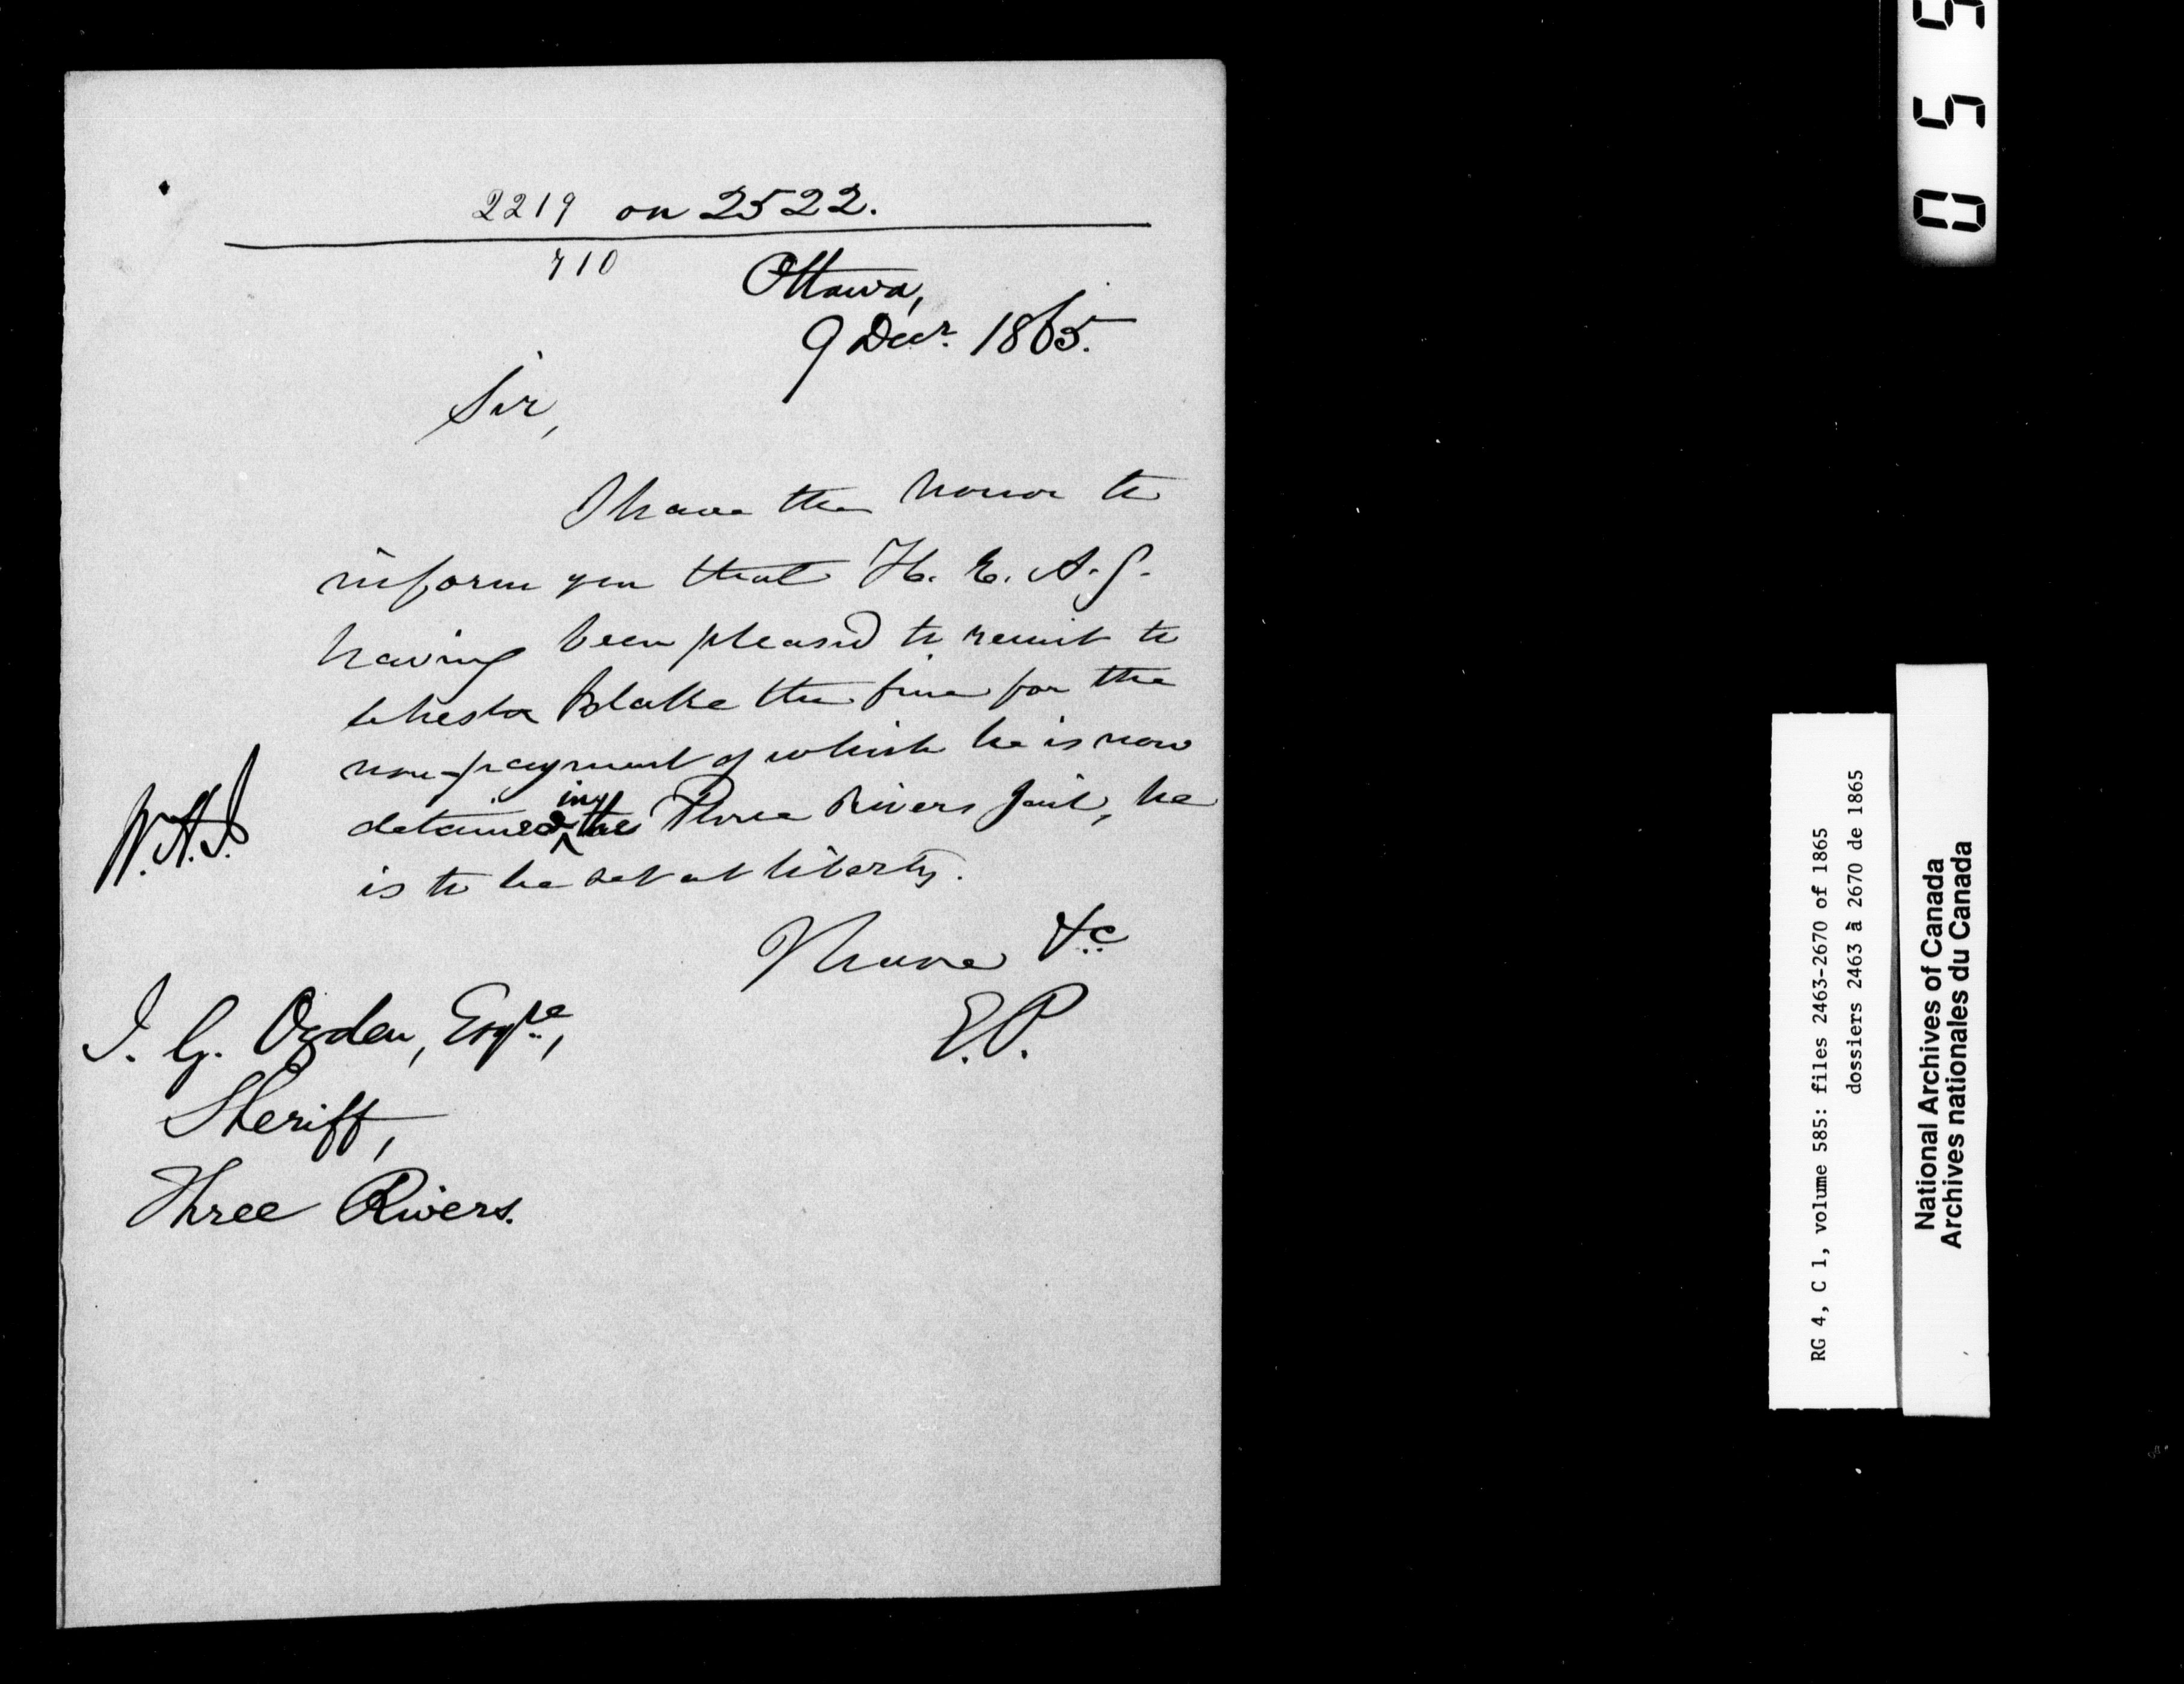 2219 on 2522.
710
Ottawa,
9 Decr. 1865.
Sir,
I have the honor to
inform you that H. E. A. G.
having been pleased to remit to
Chester Blake the fine for the
non-payment of which he is now
detained in the Three Rivers Gail, he
is to be set at liberty.
I have &c
E.P.
W.H.J.
I. G. Ogden, Esqre,
Sheriff,
Three Rivers.
055
RG 4, C 1, volume 585: files 2463-2670 of 1865
dossiers 2463 à 2670 de 1865
National Archives of Canada
Archives nationales du Canada